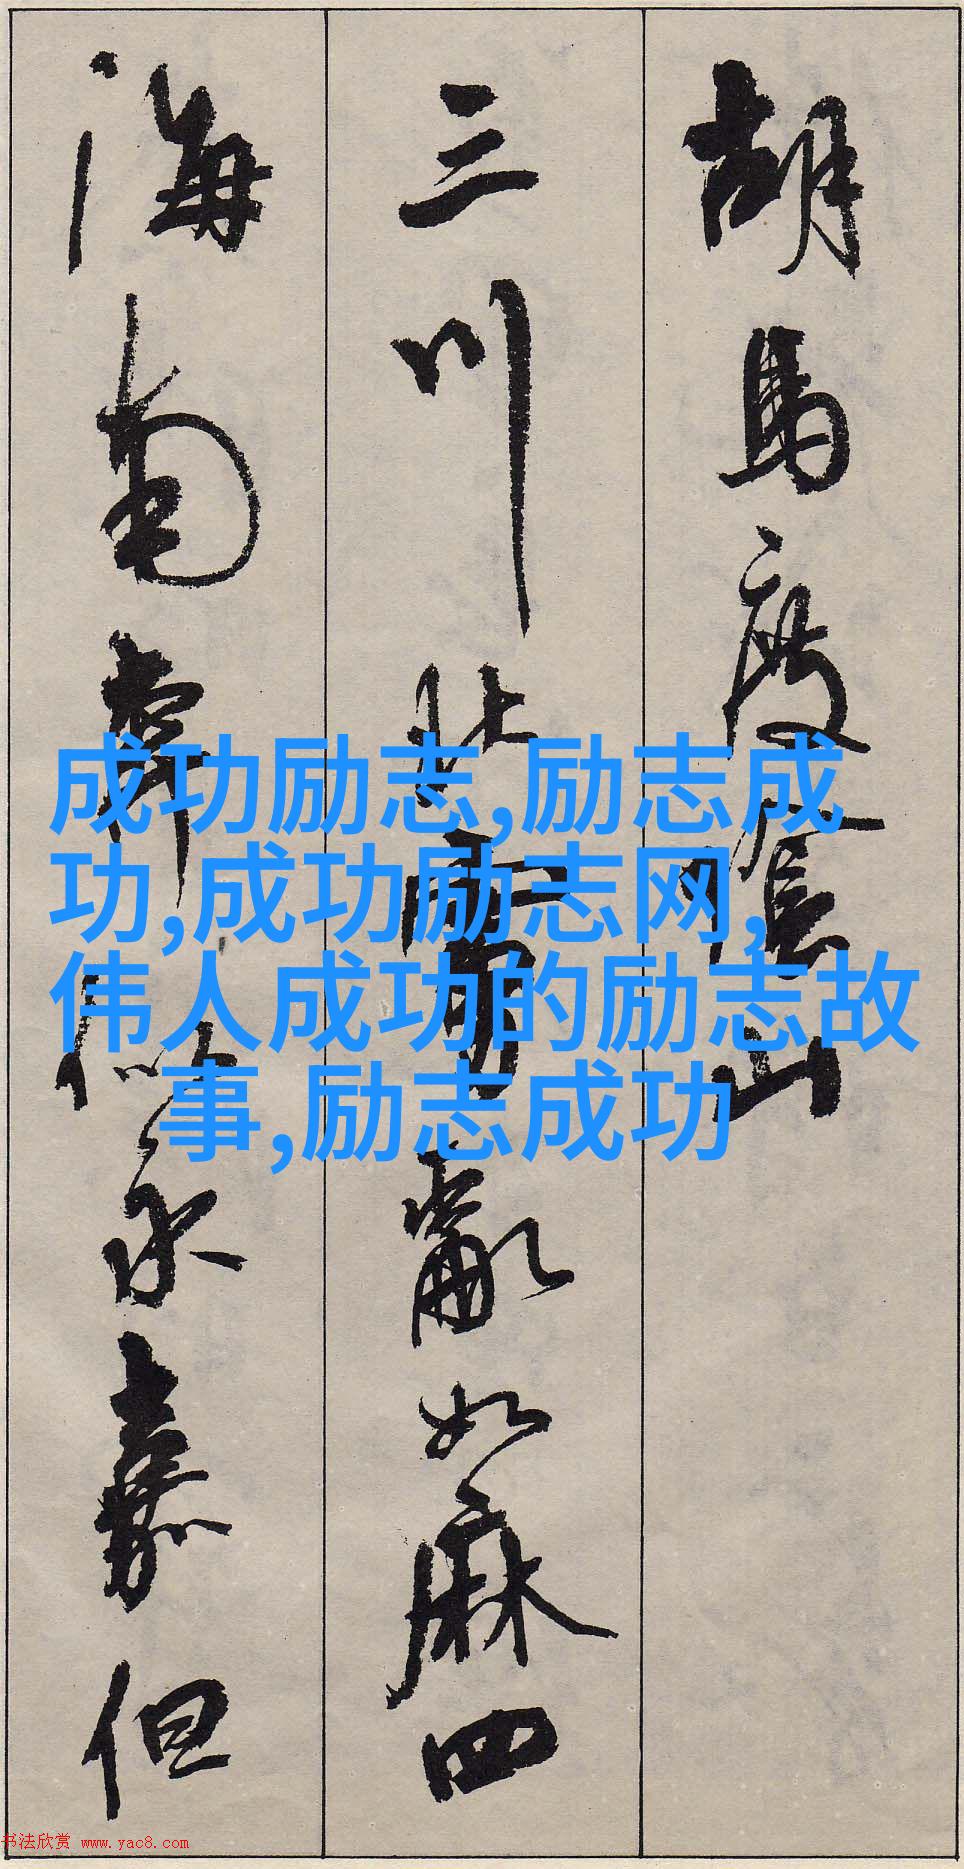 胡馬度陰山
三川北虜亂如麻四
海南奔似永嘉但
成功励志,励志成
功,成功励志网,
伟人成功的励志故
事,励志成功
书法欣赏 www.yac8.com